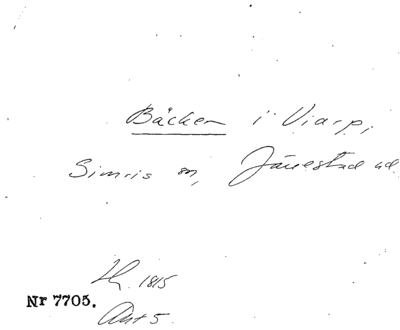 Bäcken i Viarp,
Simris sn, Järrestad hd
1815
Nr 7705.
Akt 5